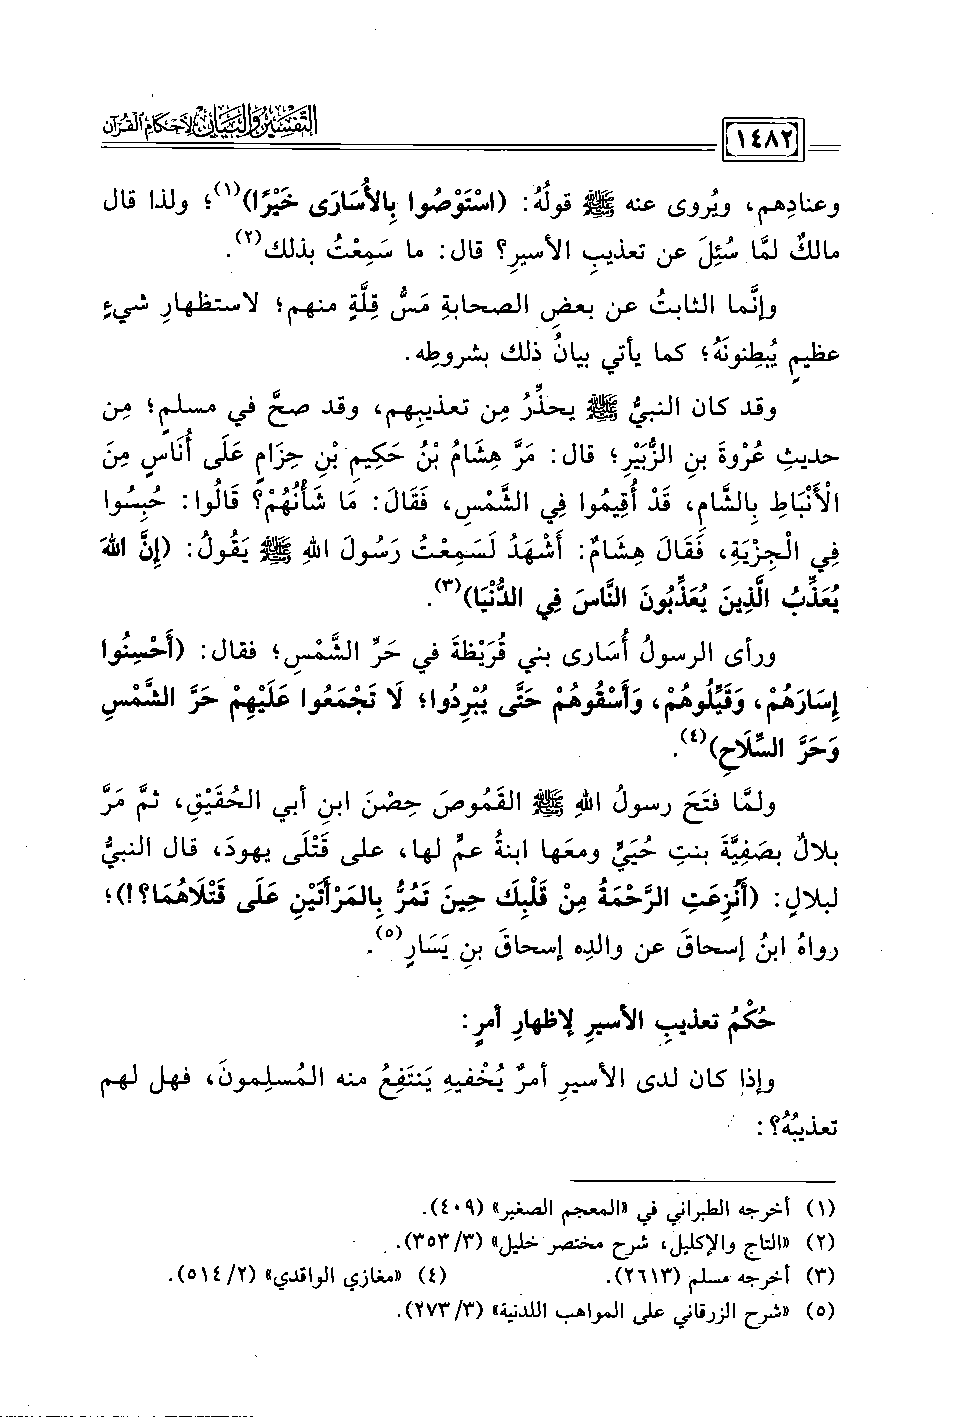 التفسير والبيان لأحكام القرآن
١٤٨٢
وعنادِهم، ويُروى عنه ﷺ قولُهُ: (اسْتَوْصُوا بِالأُسَارَى خَيْرًا)(١)؛ ولذا قال
مالكٌ لمَّا سُئِلَ عن تعذيبِ الأسيرِ؟ قال: ما سَمِعْتُ بذلك(٢).
وإنَّما الثابتُ عن بعضِ الصحابةِ مَسُّ قِلَّةٍ منهم؛ لاستظهارِ شيءٍ
عظيمٍ يُبطِنونَهُ؛ كما يأتي بيانُ ذلك بشروطِه.
وقد كان النبيُّ ﷺ يحذِّرُ مِن تعذيبِهم، وقد صحَّ في مسلمٍ؛ مِن
حديثِ عُرْوةَ بنِ الزُّبَيْرِ؛ قال: مَرَّ هِشَامُ بْنُ حَكِيمِ بْنِ حِزَامٍ عَلَى أُنَاسٍ مِنَ
الْأَنْبَاطِ بِالشَّامِ، قَدْ أُقِيمُوا فِي الشَّمْسِ، فَقَالَ: مَا شَأْنُهُمْ؟ قَالُوا: حُبِسُوا
فِي الْجِزْيَةِ، فَقَالَ هِشَامٌ: أَشْهَدُ لَسَمِعْتُ رَسُولَ اللهِ ﷺ يَقُولُ: (إِنَّ اللهَ
يُعَذِّبُ الَّذِينَ يُعَذِّبُونَ النَّاسَ فِي الدُّنْيَا)(٣).
ورأى الرسولُ أُسَارى بني قُرَيْظةَ في حَرِّ الشَّمْسِ؛ فقال: (أَحْسِنُوا
إِسَارَهُمْ، وَقَيِّلُوهُمْ، وَأَسْقُوهُمْ حَتَّى يُبْرِدُوا؛ لَا تَجْمَعُوا عَلَيْهِمْ حَرَّ الشَّمْسِ
وَحَرَّ السِّلَاحِ)(٤).
ولمَّا فتَحَ رسولُ اللهِ ﷺ القَمُوصَ حِصْنَ ابنِ أبي الحُقَيْقِ، ثمَّ مَرَّ
بلالٌ بصَفِيَّةَ بنتِ حُيَيٍّ ومعَها ابنةُ عمٍّ لها، على قَتْلَى يهودَ، قال النبيُّ
لبلالٍ: (أَنُزِعَتِ الرَّحْمَةُ مِنْ قَلْبِكَ حِينَ تَمُرُّ بِالمَرْأَتَيْنِ عَلَى قَتْلَاهُمَا؟!)؛
رواهُ ابنُ إسحاقَ عن والدِه إسحاقَ بنِ يَسَارٍ(٥).
حُكْمُ تعذيبِ الأسيرِ لإظهارِ أمرٍ:
وإذا كان لدى الأسيرِ أمرٌ يُخْفيهِ يَنتفِعُ منه المُسلِمونَ، فهل لهم
تعذيبُهُ؟:
(١) أخرجه الطبراني في «المعجم الصغير» (٤٠٩).
(٢) «التاج والإكليل، شرح مختصر خليل» (٣٥٣/٣).
(٣) أخرجه مسلم (٢٦١٣). (٤) «مغازي الواقدي» (٥١٤/٢).
(٥) «شرح الزرقاني على المواهب اللدنية» (٢٧٣/٣).